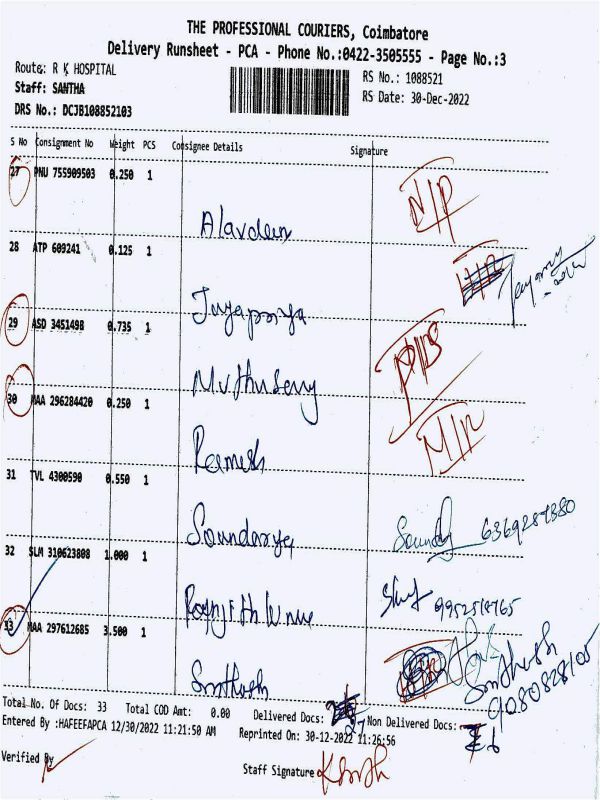 THE PROFESSIONAL COURIERS, Coimbatore
Delivery Runsheet - PCA - Phone No.:0422-3505555 - Page No.:3
Route: R K HOSPITAL
RS No.: 1088521
Staff: SANTHA
RS Date: 30-Dec-2022
DRS No.: DCJB108852103
S No Consignment No Weight PCS Consignee Details Signature
27 PNU 755909503 0.250 1
N/P
Alavdeen
28 ATP 609241 0.125 1
Jayapriya
29 ASD 3451498 0.735 1
30 MAA 296284420 0.250 1
Ramesh
31 TVL 4300590 0.550 1
Soundarya
32 SLM 310623808 1.000 1
33 MAA 297612685 3.500 1
Santhosh
Santhosh
9080828105
Total No. Of Docs: 33 Total COD Amt: 0.00 Delivered Docs: 27 Non Delivered Docs: 6
Entered By :HAFEEFAPCA 12/30/2022 11:21:50 AM Reprinted On: 30-12-2022 11:26:56
Verified By
Staff Signature